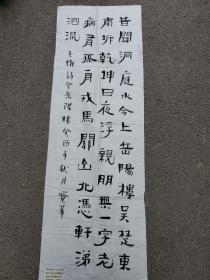 昔聞洞庭水今上岳陽樓吳楚東
南坼乾坤日夜浮親朋無一字老
病有孤舟戎馬關山北憑軒涕
泗流
杜甫詩登岳陽樓癸酉年秋月寶華